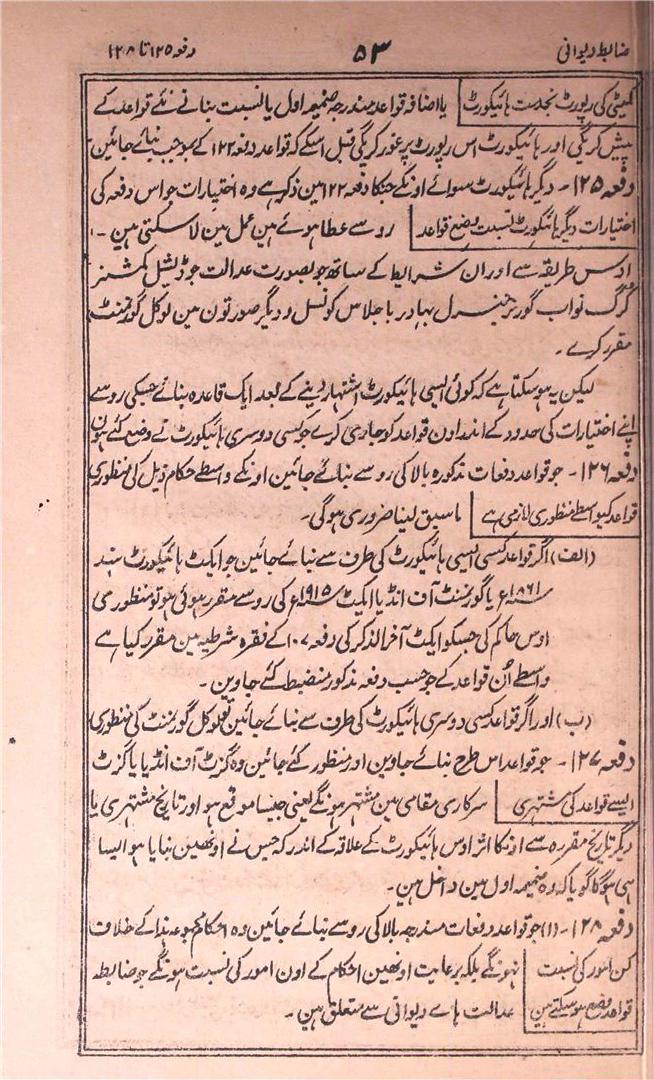 ضابطہ دیوانی ۵۳ دفعہ ۱۲۵ تا ۱۲۸
کمیٹی کی رپورٹ بخدمت ہائیکورٹ یا اضافہ قواعد مندرجہ ضمیمہ اول یا نسبت بنانے نئے قواعد کے
پیش کریگی اور ہائیکورٹ اس رپورٹ پر غور کریگی قبل اسکے کہ قواعد دفعہ ۱۲۲ کے بموجب بنائے جائین
دفعہ ۱۲۵ - دیگر ہائیکورٹ سوائے اونکے جنکا دفعہ ۱۲۲ مین ذکر ہے وہ اختیارات جو اس دفعہ کی
اختیارات دیگر ہائیکورٹ نسبت وضع قواعد روسے عطا ہوئے ہین عمل مین لا سکتی ہین -
اوس طریقہ سے اور ان شرایط کے ساتھ جو بصورت عدالت جوڈیشل کمشنر
کرگ نواب گورنر جنرل بہادر باجلاس کونسل و دیگر صورتون مین لوکل گورنمنٹ
مقرر کرے -
لیکن یہ ہو سکتا ہے کہ کوئی ایسی ہائیکورٹ اشتہار دینے کے بعد ایک قاعدہ بنائے جسکی روسے
اپنے اختیارات کی حدود کے اندر اون قواعد کو جاری کرے جو کسی دوسری ہائیکورٹ نے وضع کئے ہون
دفعہ ۱۲۶ - جو قواعد دفعات مذکورہ بالا کی روسے بنائے جائین اونکے واسطے حکام ذیل کی منظوری
قواعد کیواسطے منظوری لازمی ہے ماسبق لینا ضروری ہوگی -
(الف) اگر قواعد کسی ایسی ہائیکورٹ کی طرف سے بنائے جائین جو ایکٹ ہائیکورٹ ہند
سنہ ۱۸۶۱ع یا گورنمنٹ آف انڈیا ایکٹ سنہ ۱۹۱۵ع کی روسے مقرر ہوئی ہو تو منظوری
اوس حاکم کی جسکو ایکٹ آخر الذکر کی دفعہ ۱۰۷ کے فقرہ شرطیہ مین مقرر کیا ہے
واسطے اُن قواعد کے جو حسب دفعہ مذکور منضبط کئے جاوین -
(ب) اور اگر قواعد کسی دوسری ہائیکورٹ کی طرف سے بنائے جائین تو لوکل گورنمنٹ کی منظوری
دفعہ ۱۲۷ - جو قواعد اس طرح بنائے جاوین اور منظور کئے جائین وہ گزٹ آف انڈیا یا گزٹ
ایسے قواعد کی مشتہری سرکاری مقامی مین مشتہر ہونگے یعنی جیسا موقع ہو اور تاریخ مشتہری یا
دیگر تاریخ مقررہ سے اونکا اثر اوس ہائیکورٹ کے علاقہ کے اندر کہ جسنے اونھین بنایا ہو ایسا
ہی ہوگا گویا کہ وہ ضمیمہ اول مین داخل ہین -
دفعہ ۱۲۸ - (۱) جو قواعد دفعات مندرجہ بالا کی روسے بنائے جائین وہ احکام مجموعہ ہذا کے خلاف
کن امور کی نسبت نہونگے بلکہ برعایت اونھین احکام کے اون امور کی نسبت ہونگے جو ضابطہ
قواعد وضع ہو سکتے ہین عدالت ہاے دیوانی سے متعلق ہین -